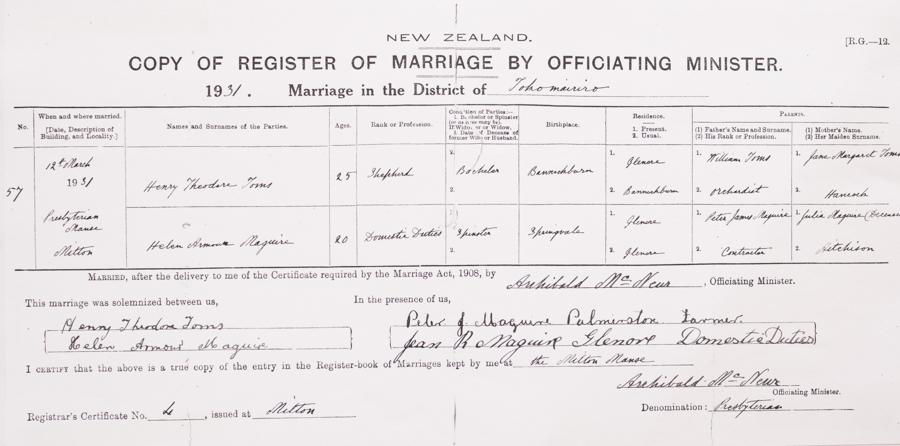 NEW ZEALAND.
[R.G.—12.
COPY OF REGISTER OF MARRIAGE BY OFFICIATING MINISTER.
1931. Marriage in the District of Tokomairiro
No.
When and where married.
[Date, Description of Building, and Locality.]
Names and Surnames of the Parties.
Ages.
Rank or Profession.
Condition of Parties:—
1. Bachelor or Spinster
(or as case may be).
If Widower or Widow,
2. Date of Decease of
former Wife or Husband.
Birthplace.
Residence.
1. Present.
2. Usual.
PARENTS.
(1) Father's Name and Surname.
(2) His Rank or Profession.
(1) Mother's Name.
(2) Her Maiden Surname.
57
12th March
1931
Presbyterian
Manse
Milton
Henry Theodore Toms
25
Shepherd
Bachelor
2.
Bannockburn
1. Glenore
2. Bannockburn
1. William Toms
2. Orchardist
1. Jane Margaret Toms
2. Hancock
Helen Armour Maguire
20
Domestic Duties
1. Spinster
2.
Springvale
1. Glenore
2. Glenore
1. Peter James Maguire
2. Contractor
1. Julia Maguire (Deceased
2. Aitchison
MARRIED, after the delivery to me of the Certificate required by the Marriage Act, 1908, by Archibald McNeur, Officiating Minister.
This marriage was solemnized between us,
In the presence of us,
Henry Theodore Toms
Helen Armour Maguire
Peter J. Maguire Palmerston Farmer.
Jean R Maguire Glenore Domestic Duties
I CERTIFY that the above is a true copy of the entry in the Register-book of Marriages kept by me at the Milton Manse
Archibald McNeur
Officiating Minister.
Registrar's Certificate No. 4, issued at Milton
Denomination: Presbyterian